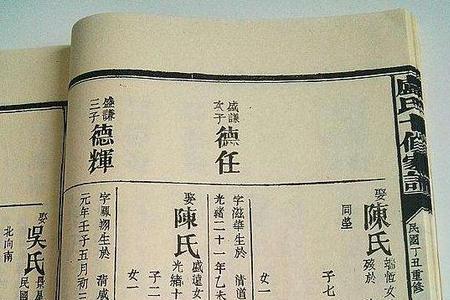 盧氏十修家譜
民國丁丑重修
盛謙
德任
盛謙
三子
德輝
娶
陳氏
歿於
子七
同堂
女一
字滋華生於 清道
光緒二十一年乙未
娶
陳氏
盛遠女
光緒十
子二
女一
字鳳翔生於 清咸
元年壬子五月初三
娶
吳氏
北向南